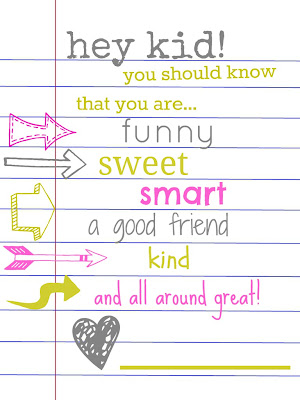 hey kid!
you should know
that you are...
funny
sweet
smart
a good friend
kind
and all around great!